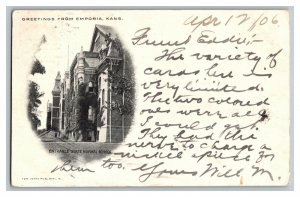 GREETINGS FROM EMPORIA, KANS.
Apr 12/06
Friend Eddie:
The variety of
cards here is
very limited.
The two colored
ones were all
I could find
They had the
nerve to charge a
nickel apiece for
ENTRANCE STATE NORMAL SCHOOL
them too. Yours Will M.